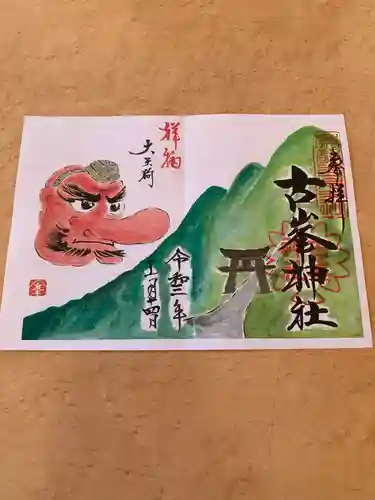 奉拝
古峯神社
祥福
大天狗
令和二年
十一月十四日